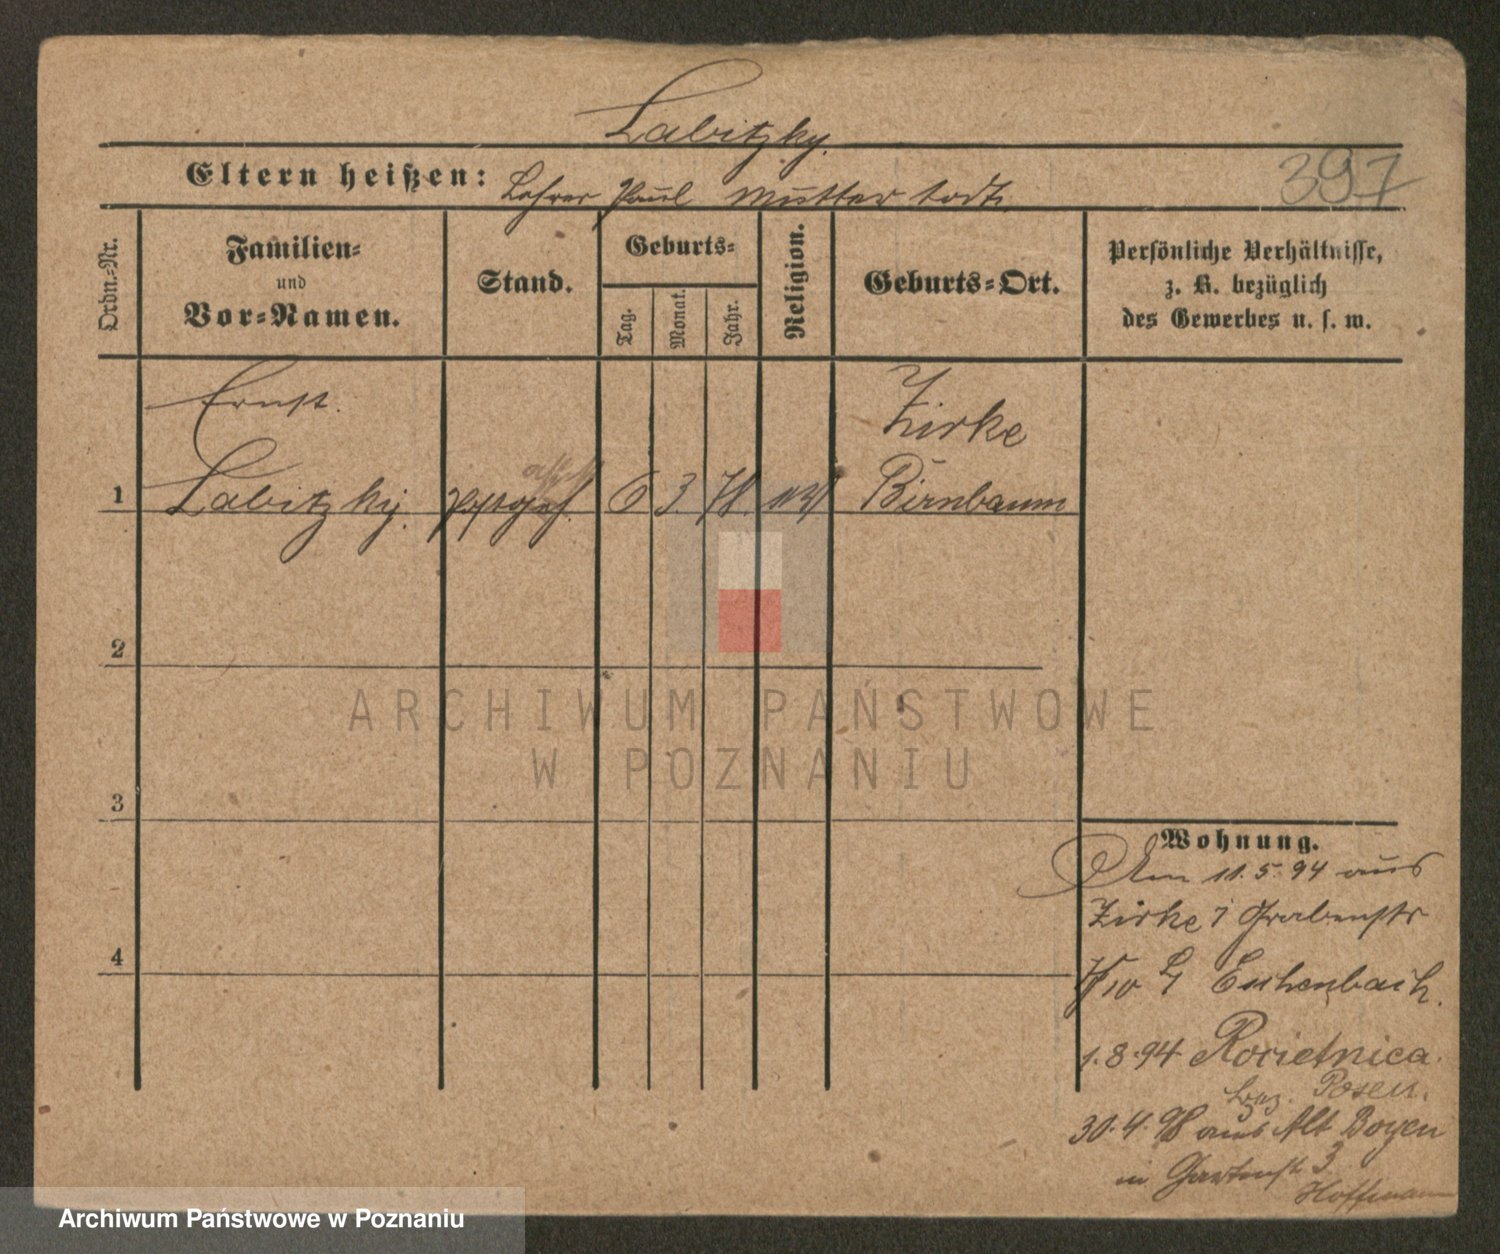 Labitzky.
Eltern heißen: Lehrer Paul Mutter todt.
397
Ordn.-Nr.
Familien-
und
Vor-Namen.
Stand.
Geburts-
Tag.
Monat.
Jahr.
Religion.
Geburts-Ort.
Persönliche Verhältnisse,
z. B. bezüglich
des Gewerbes u. s. w.
Ernst.
Zirke
1 Labitzky. 6 3 78. Birnbaum
2
3
4
Wohnung.
Am 11.5.94 aus
Zirke Grabenstr
Eschenbach.
1.8.94 Rocietnica.
Posen.
30.4.98 aus Alt Boyen
in Gartenstr 3
Hoffmann
ARCHIWUM PAŃSTWOWE
W POZNANIU
Archiwum Państwowe w Poznaniu